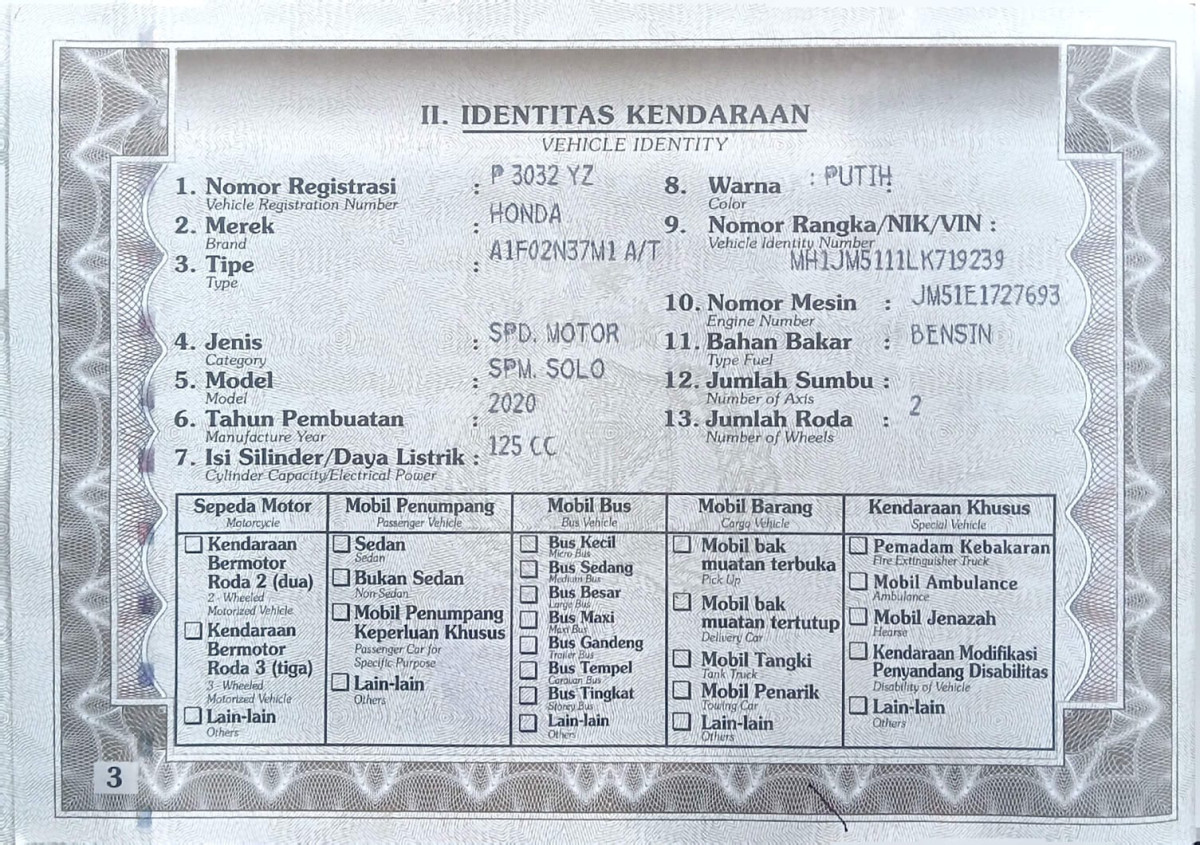 II. IDENTITAS KENDARAAN
VEHICLE IDENTITY
1. Nomor Registrasi : P 3032 YZ
Vehicle Registration Number
2. Merek : HONDA
Brand
3. Tipe : A1F02N37M1 A/T
Type
4. Jenis : SPD. MOTOR
Category
5. Model : SPM. SOLO
Model
6. Tahun Pembuatan : 2020
Manufacture Year
7. Isi Silinder/Daya Listrik : 125 CC
Cylinder Capacity/Electrical Power
8. Warna : PUTIH
Color
9. Nomor Rangka/NIK/VIN :
Vehicle Identity Number
MH1JM5111LK719239
10. Nomor Mesin : JM51E1727693
Engine Number
11. Bahan Bakar : BENSIN
Type Fuel
12. Jumlah Sumbu :
Number of Axis
13. Jumlah Roda : 2
Number of Wheels
Sepeda Motor
Motorcycle
Kendaraan
Bermotor
Roda 2 (dua)
2 - Wheeled
Motorized Vehicle
Kendaraan
Bermotor
Roda 3 (tiga)
3 - Wheeled
Motorized Vehicle
Lain-lain
Others
Mobil Penumpang
Passenger Vehicle
Sedan
Sedan
Bukan Sedan
Non Sedan
Mobil Penumpang
Keperluan Khusus
Passenger Car for
Specific Purpose
Lain-lain
Others
Mobil Bus
Bus Vehicle
Bus Kecil
Micro Bus
Bus Sedang
Medium Bus
Bus Besar
Large Bus
Bus Maxi
Maxi Bus
Bus Gandeng
Trailer Bus
Bus Tempel
Caravan Bus
Bus Tingkat
Storey Bus
Lain-lain
Others
Mobil Barang
Cargo Vehicle
Mobil bak
muatan terbuka
Pick Up
Mobil bak
muatan tertutup
Delivery Car
Mobil Tangki
Tank Truck
Mobil Penarik
Towing Car
Lain-lain
Others
Kendaraan Khusus
Special Vehicle
Pemadam Kebakaran
Fire Extinguisher Truck
Mobil Ambulance
Ambulance
Mobil Jenazah
Hearse
Kendaraan Modifikasi
Penyandang Disabilitas
Disability of Vehicle
Lain-lain
Others
3